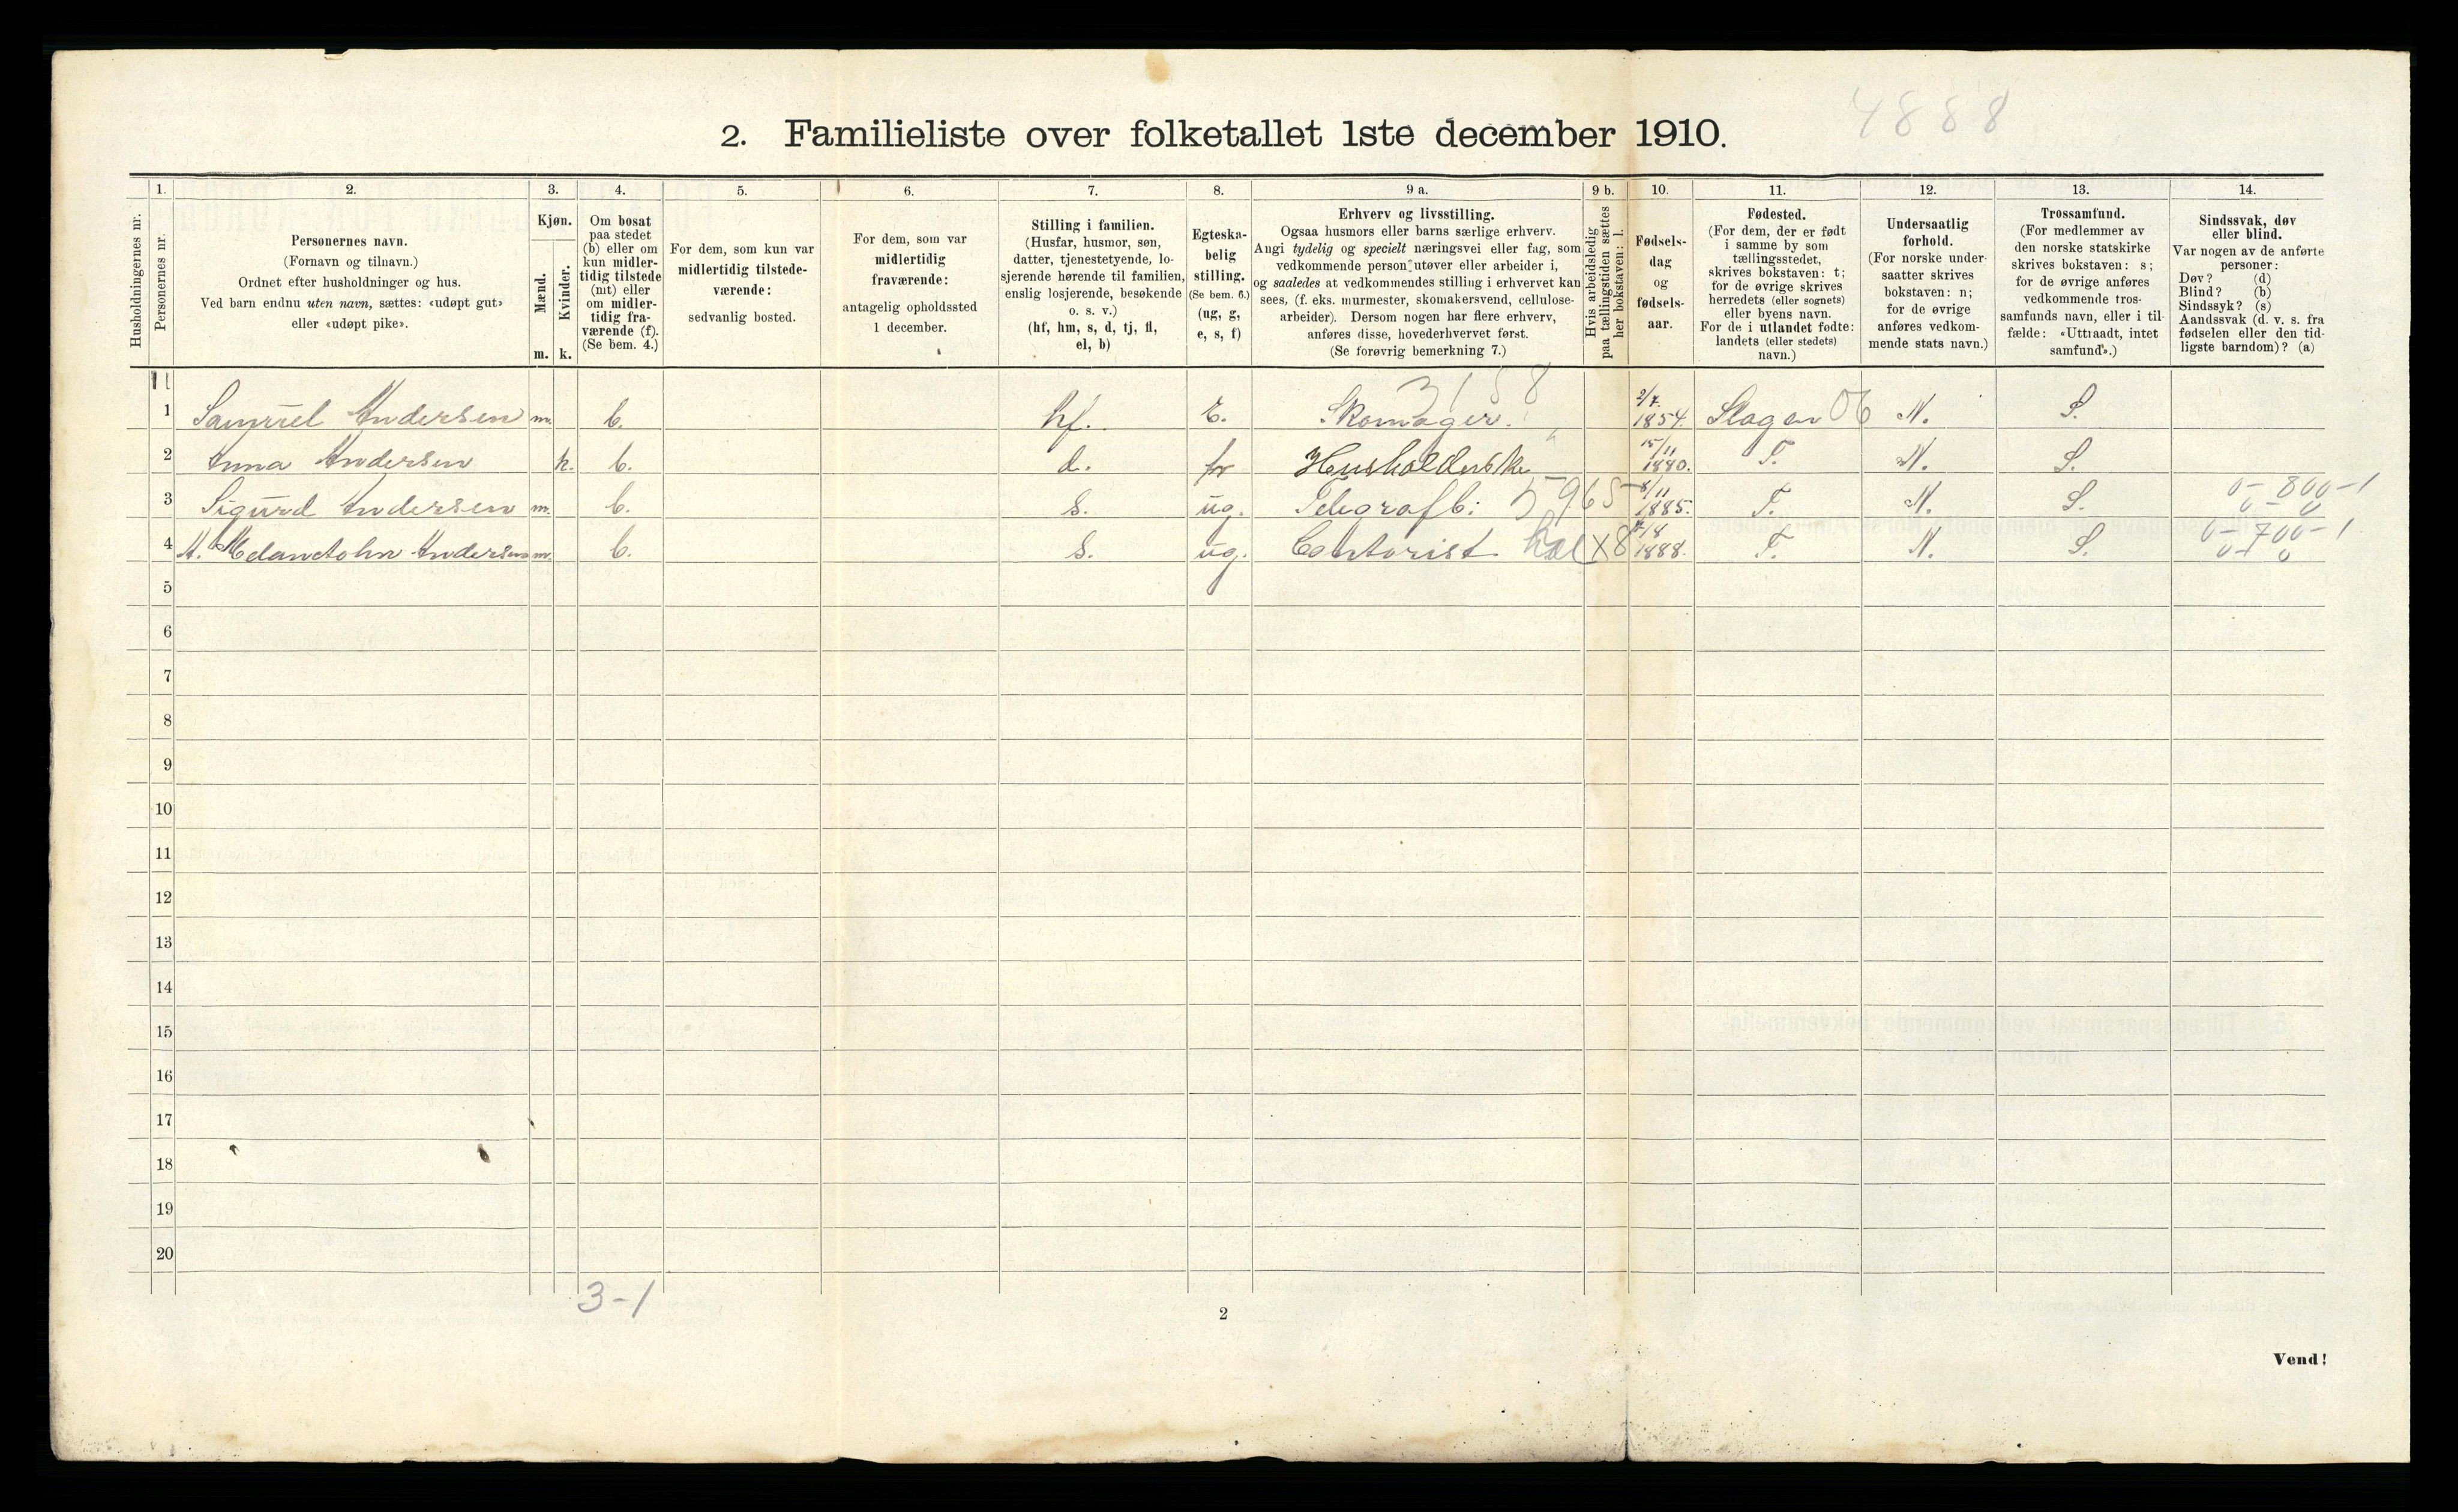 4888
2. Familieliste over folketallet 1ste december 1910.
1. 2. 3. 4. 5. 6. 7. 8. 9 a. 9 b. 10. 11. 12. 13. 14.
Husholdningernes nr.
Personernes nr.
Personernes navn.
(Fornavn og tilnavn.)
Ordnet efter husholdninger og hus.
Ved barn endnu uten navn, sættes: «udøpt gut»
eller «udøpt pike».
Kjøn.
Mænd.
Kvinder.
m. k.
Om bosat
paa stedet
(b) eller om
kun midler-
tidig tilstede
(mt) eller
om midler-
tidig fra-
værende (f).
(Se bem. 4.)
For dem, som kun var
midlertidig tilstede-
værende:
sedvanlig bosted.
For dem, som var
midlertidig
fraværende:
antagelig opholdssted
1 december.
Stilling i familien.
(Husfar, husmor, søn,
datter, tjenestetyende, lo-
sjerende hørende til familien,
enslig losjerende, besøkende
o. s. v.)
(hf, hm, s, d, tj, fl,
el, b)
Egteska-
belig
stilling.
(Se bem. 6.)
(ug, g,
e, s, f)
Erhverv og livsstilling.
Ogsaa husmors eller barns særlige erhverv.
Angi tydelig og specielt næringsvei eller fag, som
vedkommende person utøver eller arbeider i,
og saaledes at vedkommendes stilling i erhvervet kan
sees, (f. eks. murmester, skomakersvend, cellulose-
arbeider). Dersom nogen har flere erhverv,
anføres disse, hovederhvervet først.
(Se forøvrig bemerkning 7.)
Hvis arbeidsledig
paa tællingstiden sættes
her bokstaven: l.
Fødsels-
dag
og
fødsels-
aar.
Fødested.
(For dem, der er født
i samme by som
tællingsstedet,
skrives bokstaven: t;
for de øvrige skrives
herredets (eller sognets)
eller byens navn.
For de i utlandet fødte:
landets (eller stedets)
navn.)
Undersaatlig
forhold.
(For norske under-
saatter skrives
bokstaven: n;
for de øvrige
anføres vedkom-
mende stats navn.)
Trossamfund.
(For medlemmer av
den norske statskirke
skrives bokstaven: s;
for de øvrige anføres
vedkommende tros-
samfunds navn, eller i til-
fælde: «Uttraadt, intet
samfund».)
Sindssvak, døv
eller blind.
Var nogen av de anførte
personer:
Døv? (d)
Blind? (b)
Sindssyk? (s)
Aandssvak (d. v. s. fra
fødselen eller den tid-
ligste barndom)? (a)
3158
1 Samuel Andersen m. b. hf. E. Skomager. 2/7. 1854. Slagen 06 N. S.
2 Anna Andersen k. b. d. fr Husholderske 15/11 1880. T. N. S.
3 Sigurd Andersen m. b. s. ug. Telegrafb: 5965 8/11 1885. T. N. S. 0-800-1
4 M. Melanctohn Andersen m. b. s. ug. Contorist X8 1888. T. N. S. 0-700-1
5
6
7
8
9
10
11
12
13
14
15
16
17
18
19
20
3-1
2
Vend!